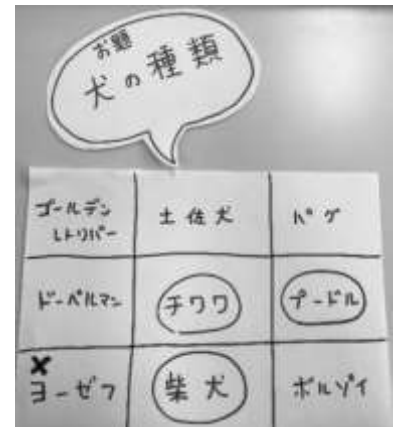 お題
犬の種類
ゴールデン
レトリバー
土佐犬
パグ
ドーベルマン
チワワ
プードル
×
ヨーゼフ
柴犬
ボルゾイ